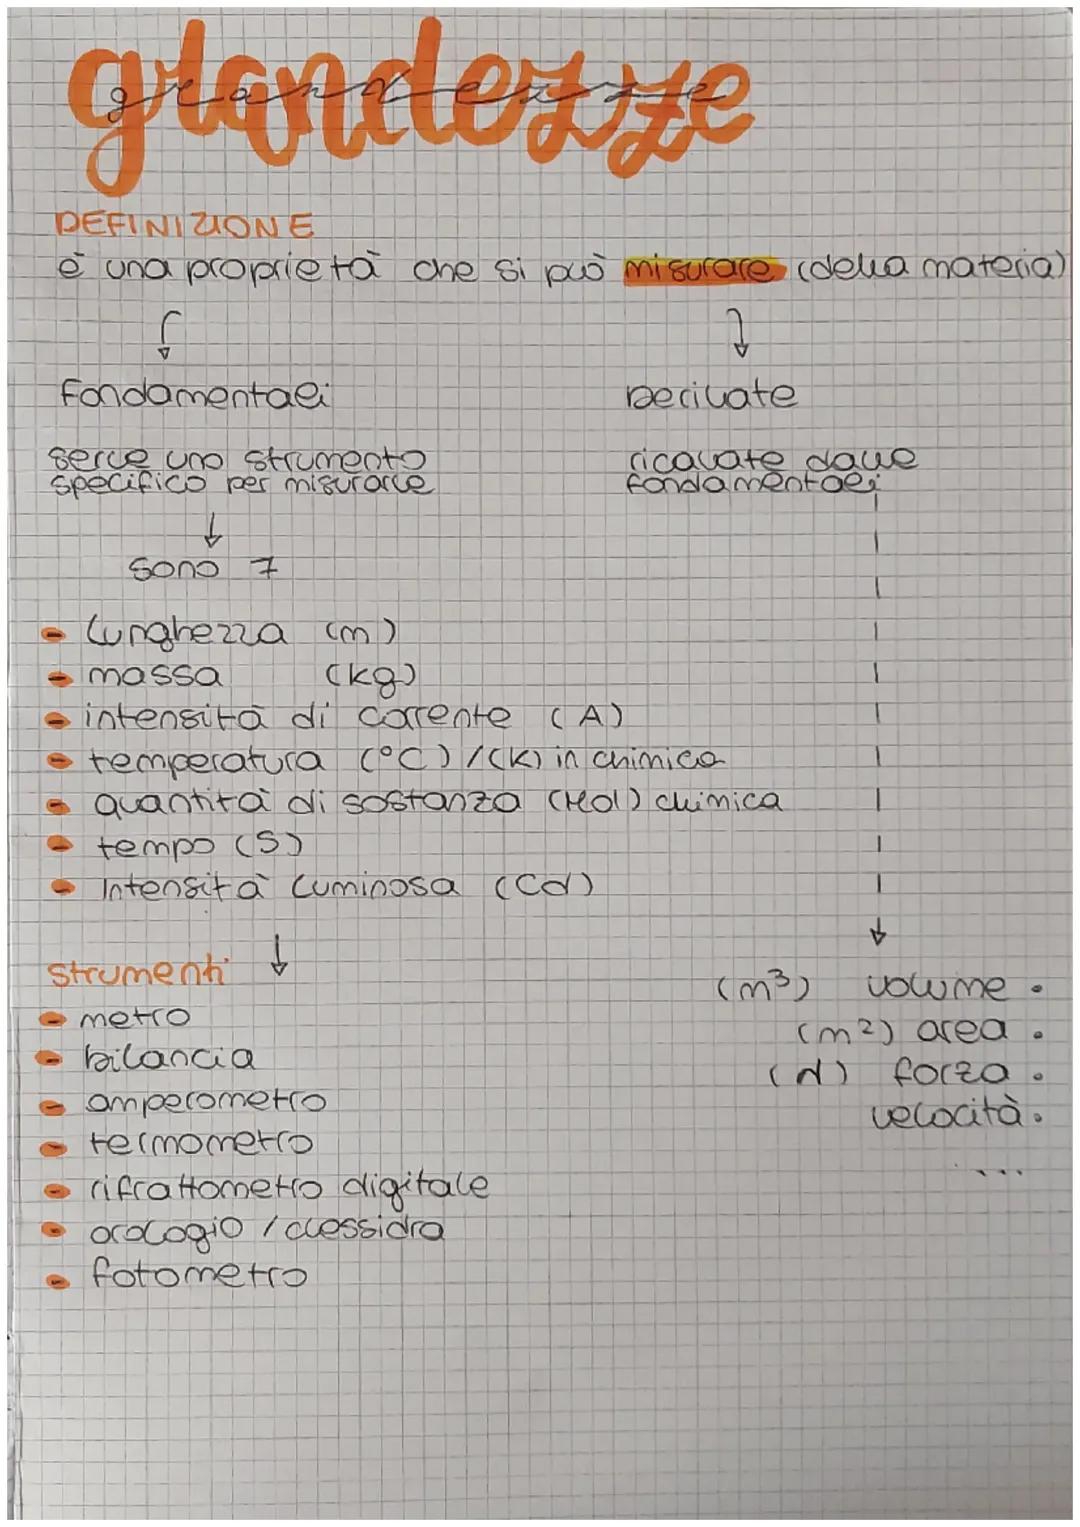 grandezze
DEFINIZIONE
è una proprietà che si può misurare (della materia)
fondamentali
Derivate
serve uno strumento
specifico per misurarle
ricavate dalle
fondamentali
sono 7
- lunghezza (m)
- massa (kg)
- intensità di corrente (A)
- temperatura (°C) / (K) in chimica
- quantità di sostanza (Mol) chimica
- tempo (S)
- Intensità luminosa (Cd)
strumenti
- metro
- bilancia
- amperometro
- termometro
- rifrattometro digitale
- orologio / clessidra
- fotometro
(m³) volume •
(m²) area •
(N) forza •
velocità •
...